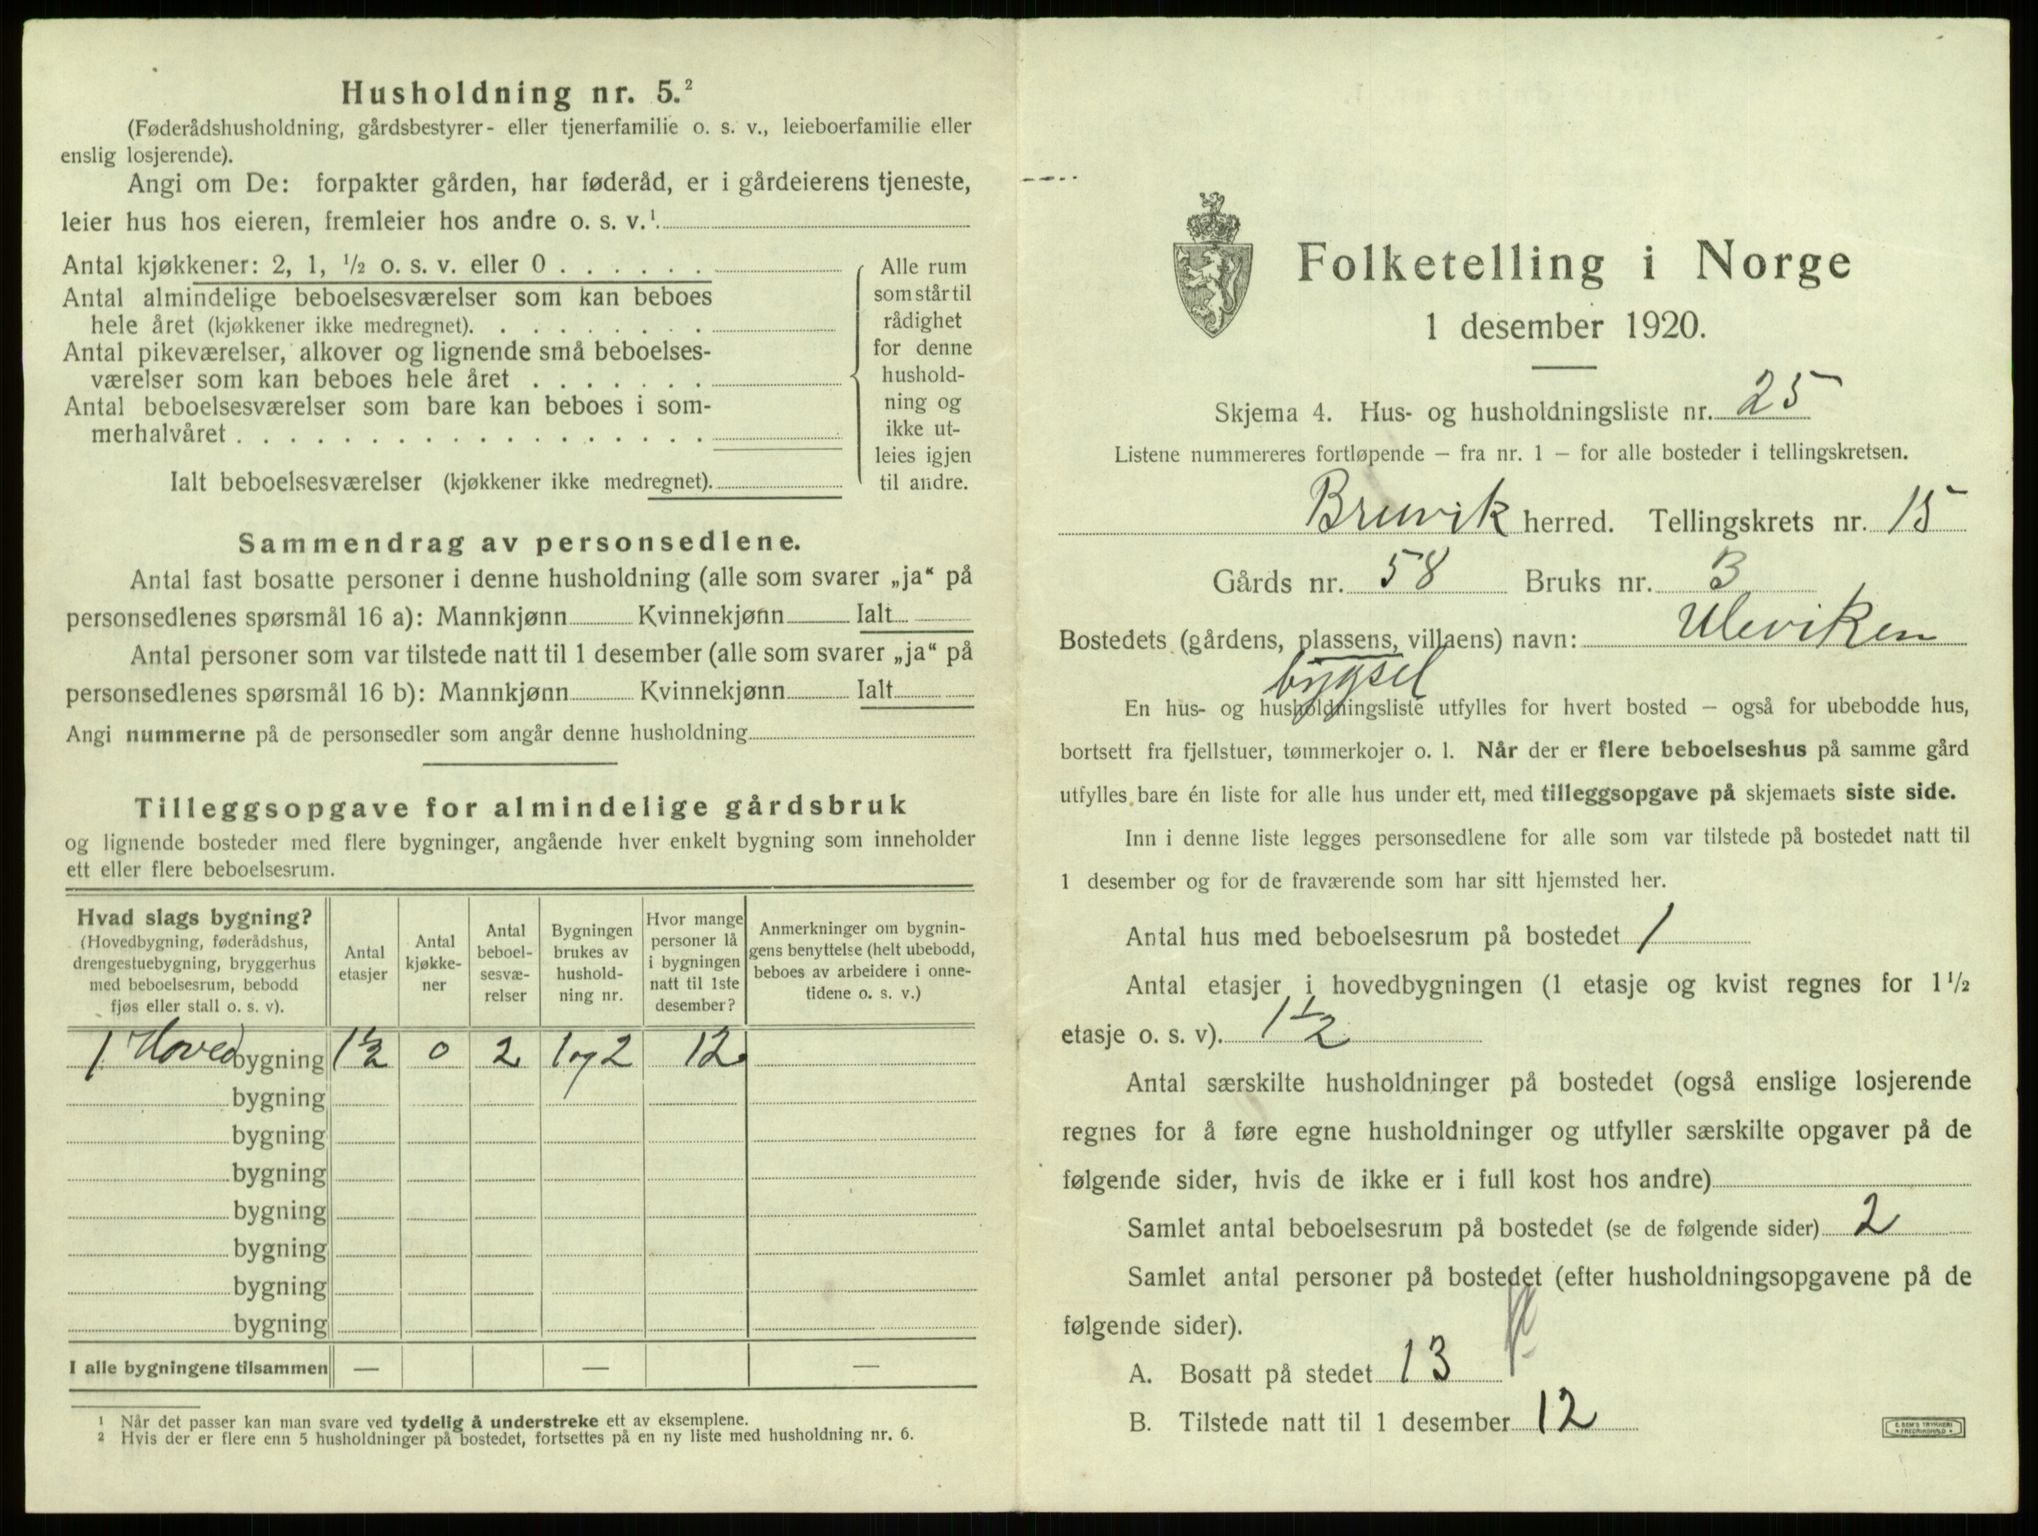 Husholdning nr. 5.²
(Føderådshusholdning, gårdsbestyrer- eller tjenerfamilie o. s. v., leieboerfamilie eller
enslig losjerende).
Angi om De: forpakter gården, har føderåd, er i gårdeierens tjeneste,
leier hus hos eieren, fremleier hos andre o. s. v.¹
Antal kjøkkener: 2, 1, ½ o. s. v. eller 0
Antal almindelige beboelsesværelser som kan beboes
hele året (kjøkkener ikke medregnet).
Antal pikeværelser, alkover og lignende små beboelses-
værelser som kan beboes hele året
Antal beboelsesværelser som bare kan beboes i som-
merhalvåret
Ialt beboelsesværelser (kjøkkener ikke medregnet).
Alle rum
som står til
rådighet
for denne
hushold-
ning og
ikke ut-
leies igjen
til andre.
Sammendrag av personsedlene.
Antal fast bosatte personer i denne husholdning (alle som svarer „ja“ på
personsedlenes spørsmål 16 a): Mannkjønn Kvinnekjønn Ialt
Antal personer som var tilstede natt til 1 desember (alle som svarer „ja“ på
personsedlenes spørsmål 16 b): Mannkjønn Kvinnekjønn Ialt
Angi nummerne på de personsedler som angår denne husholdning
Tilleggsopgave for almindelige gårdsbruk
og lignende bosteder med flere bygninger, angående hver enkelt bygning som inneholder
ett eller flere beboelsesrum.
Hvad slags bygning?
(Hovedbygning, føderådshus,
drengestuebygning, bryggerhus
med beboelsesrum, bebodd
fjøs eller stall o. s. v).
Antal
etasjer
Antal
kjøkke-
ner
Antal
beboel-
sesvæ-
relser
Bygningen
brukes av
hushold-
ning nr.
Hvor mange
personer lå
i bygningen
natt til 1ste
desember?
Anmerkninger om bygnin-
gens benyttelse (helt ubebodd,
beboes av arbeidere i onne-
tidene o. s. v.)
1 Hovedbygning 1½ 0 2 1 og 2 12
bygning
bygning
bygning
bygning
bygning
bygning
bygning
I alle bygningene tilsammen — — —
¹ Når det passer kan man svare ved tydelig å understreke ett av eksemplene.
² Hvis der er flere enn 5 husholdninger på bostedet, fortsettes på en ny liste med husholdning nr. 6.
Folketelling i Norge
1 desember 1920.
Skjema 4. Hus- og husholdningsliste nr. 25
Listene nummereres fortløpende — fra nr. 1 — for alle bosteder i tellingskretsen.
Bruvik herred. Tellingskrets nr. 15
Gårds nr. 58 Bruks nr. 3
Bostedets (gårdens, plassens, villaens) navn: Uleviken
bygsel
En hus- og husholdningsliste utfylles for hvert bosted — også for ubebodde hus,
bortsett fra fjellstuer, tømmerkojer o. l. Når der er flere beboelseshus på samme gård
utfylles bare én liste for alle hus under ett, med tilleggsopgave på skjemaets siste side.
Inn i denne liste legges personsedlene for alle som var tilstede på bostedet natt til
1 desember og for de fraværende som har sitt hjemsted her.
Antal hus med beboelsesrum på bostedet 1
Antal etasjer i hovedbygningen (1 etasje og kvist regnes for 1½
etasje o. s. v). 1½
Antal særskilte husholdninger på bostedet (også enslige losjerende
regnes for å føre egne husholdninger og utfyller særskilte opgaver på de
følgende sider, hvis de ikke er i full kost hos andre)
Samlet antal beboelsesrum på bostedet (se de følgende sider) 2
Samlet antal personer på bostedet (efter husholdningsopgavene på de
følgende sider).
A. Bosatt på stedet 13
B. Tilstede natt til 1 desember 12
E. SEM'S TRYKKERI
FREDRIKSHALD